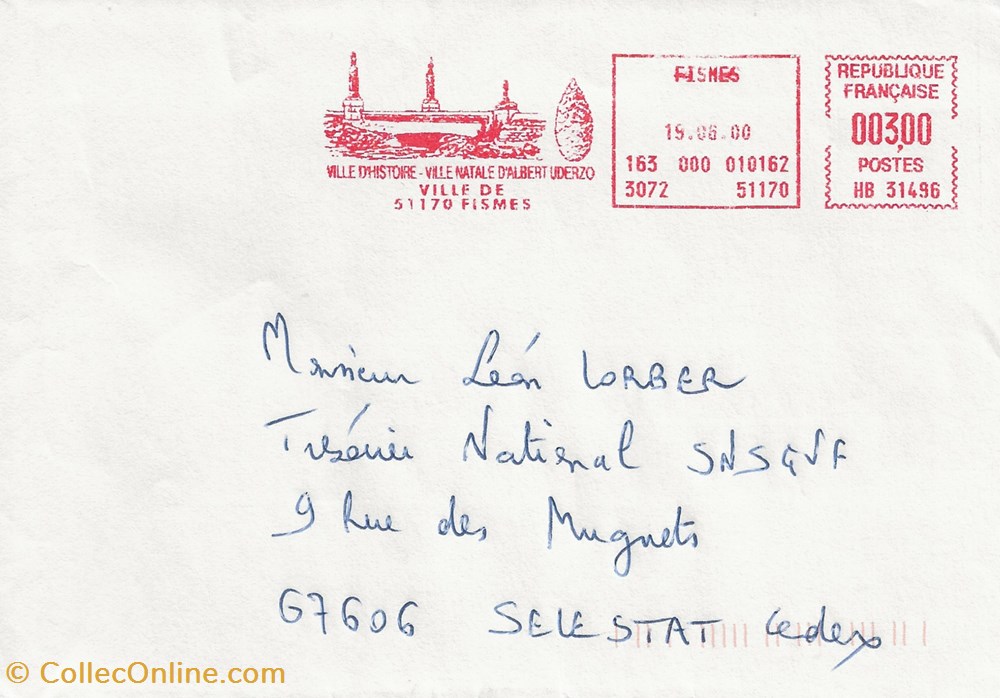 VILLE D'HISTOIRE - VILLE NATALE D'ALBERT UDERZO
VILLE DE
51170 FISMES
FISMES
19.06.00
163 000 010162
3072 51170
REPUBLIQUE
FRANÇAISE
003,00
POSTES
HB 31496
Monsieur Léon LORBER
Trésorier National SNSGVF
9 Rue des Muguets
67606 SELESTAT Cedex
© CollecOnline.com